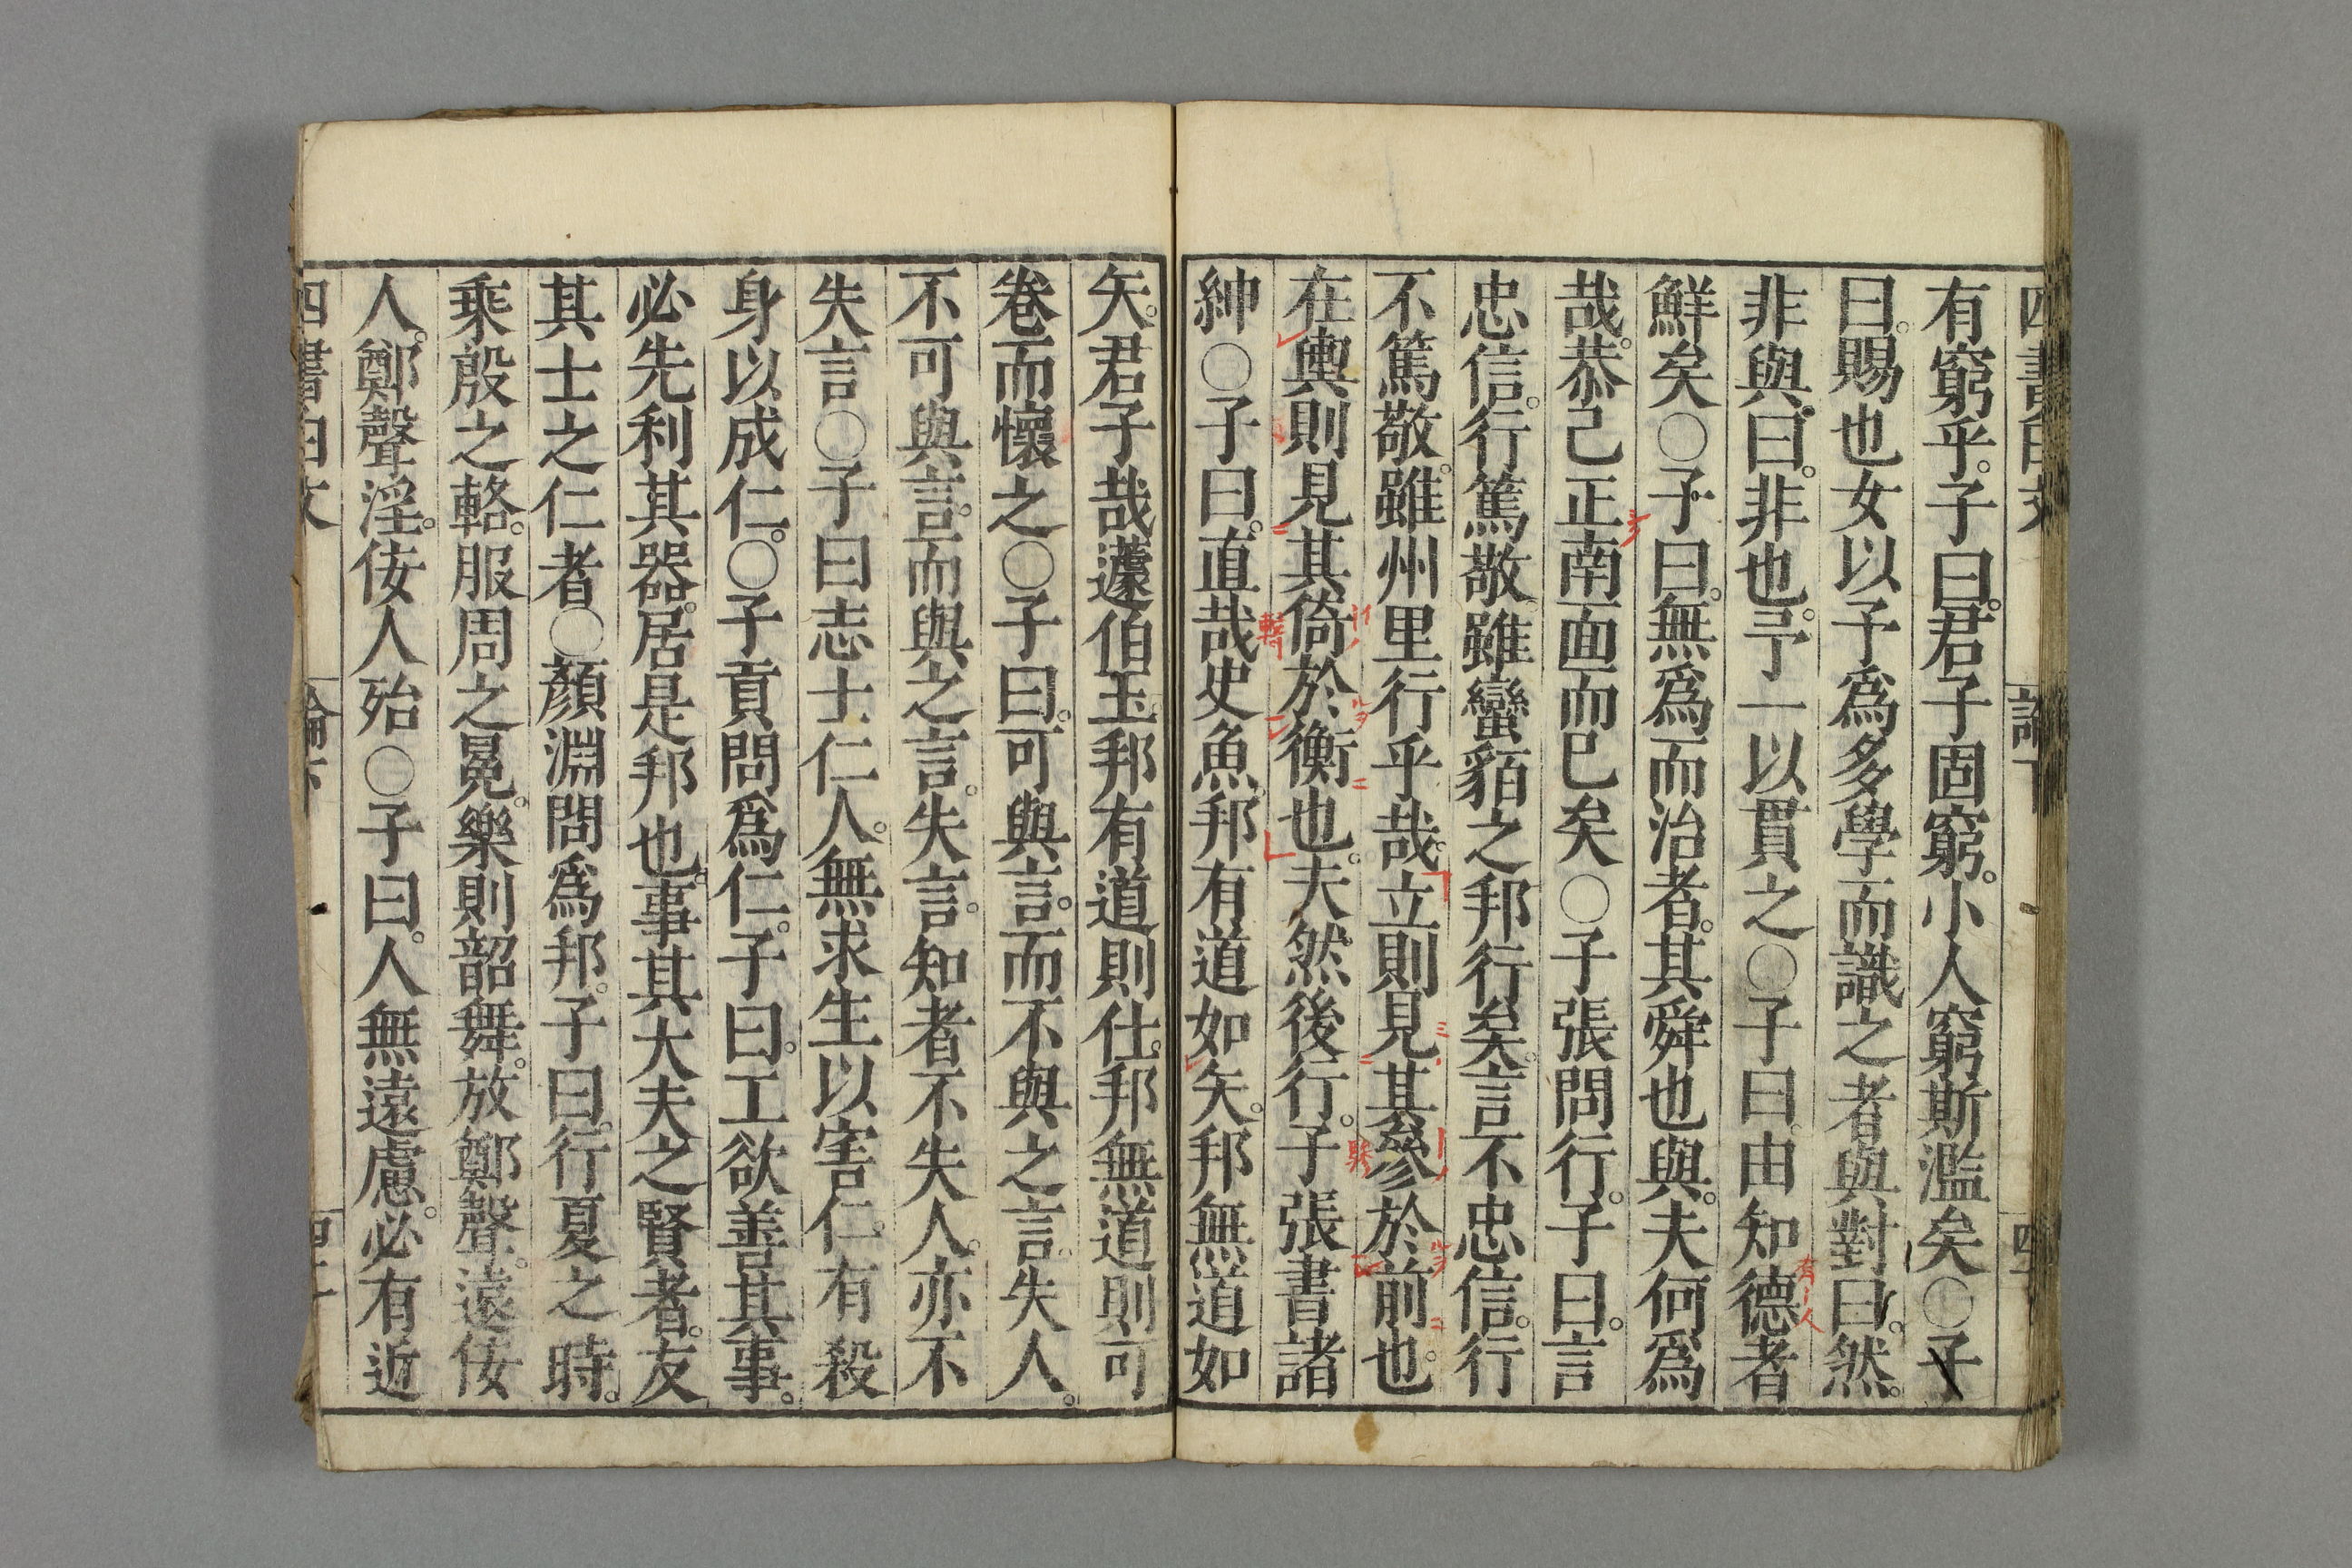 有窮乎。子曰。君子固窮。小人窮斯濫矣○子
曰。賜也女以予爲多學而識之者與對曰。然。
非與。曰。非也。予一以貫之○子曰。由知德者
鮮矣○子曰。無爲而治者。其舜也與。夫何爲
哉。恭己正南面而已矣○子張問行。子曰。言
忠信。行篤敬雖蠻貊之邦行矣。言不忠信。行
不篤敬。雖州里行乎哉。立則見其參於前也。
在輿則見其倚於衡也。夫然後行。子張書諸
紳○子曰。直哉史魚。邦有道如矢。邦無道如
矢。君子哉蘧伯玉邦有道則仕。邦無道則可
卷而懷之○子曰。可與言。而不與之言。失人。
不可與言。而與之言。失言。知者不失人。亦不
失言○子曰志士仁人。無求生以害仁。有殺
身以成仁。○子貢問爲仁。子曰。工欲善其事。
必先利其器。居是邦也。事其大夫之賢者。友
其士之仁者○顏淵問爲邦。子曰。行夏之時。
乘殷之輅。服周之冕。樂則韶舞。放鄭聲。遠佞
人。鄭聲淫。佞人殆○子曰。人無遠慮。必有近
四書白文 論下